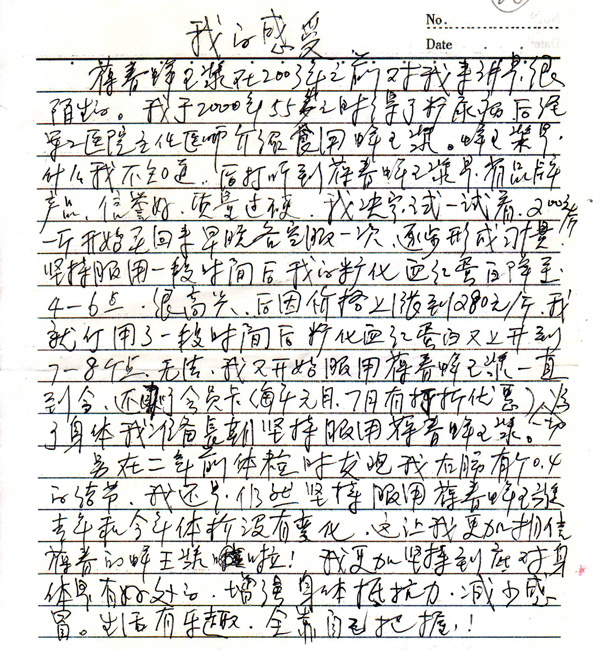 No.
Date
我的感受
葆春蜂王浆在2003年之前对我来讲是很
陌生的。我于2000年55岁之时得了糖尿病后经
军工医院主任医师介绍食用蜂王浆。蜂王浆是
什么我不知道,后打听到葆春蜂王浆是有品牌
产品、信誉好、质量过硬,我决定试一试看。
一斤开始买回来早晚各空服一次,逐步形成习惯,
坚持服用一段时间后我的糖化血红蛋白降至
4-6点,很高兴,后因价格上涨到1280元/斤,我
就停用了一段时间后糖化血红蛋白又上升到
7-8个点,无法,我又开始服用葆春蜂王浆一直
到今,还办了会员卡(每年元月、7月有打折优惠)为
了身体我准备长期坚持服用葆春蜂王浆。
另在二年前体检时发现我右肺有个0.4
的结节,我还是仍然坚持服用葆春蜂王浆
去年和今年体检没有变化,这让我更加相信
葆春的蜂王浆啦!我更加坚持到底对身
体是有好处的,增强身体抵抗力,减少感
冒。生活有乐趣,全靠自己把握!